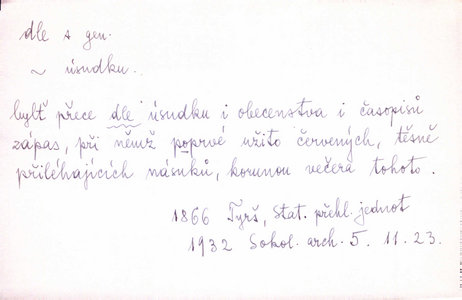 dle s gen.
~ úsudku..
bylť přece dle úsudku i obecenstva i časopisů
zápas, při němž poprvé užito červených, těsně
přiléhajících násuků, korunou večera tohoto.
1866 Tyrš, Stat. přehl. jednot
1932 Sokol. arch. 5. 11. 23.